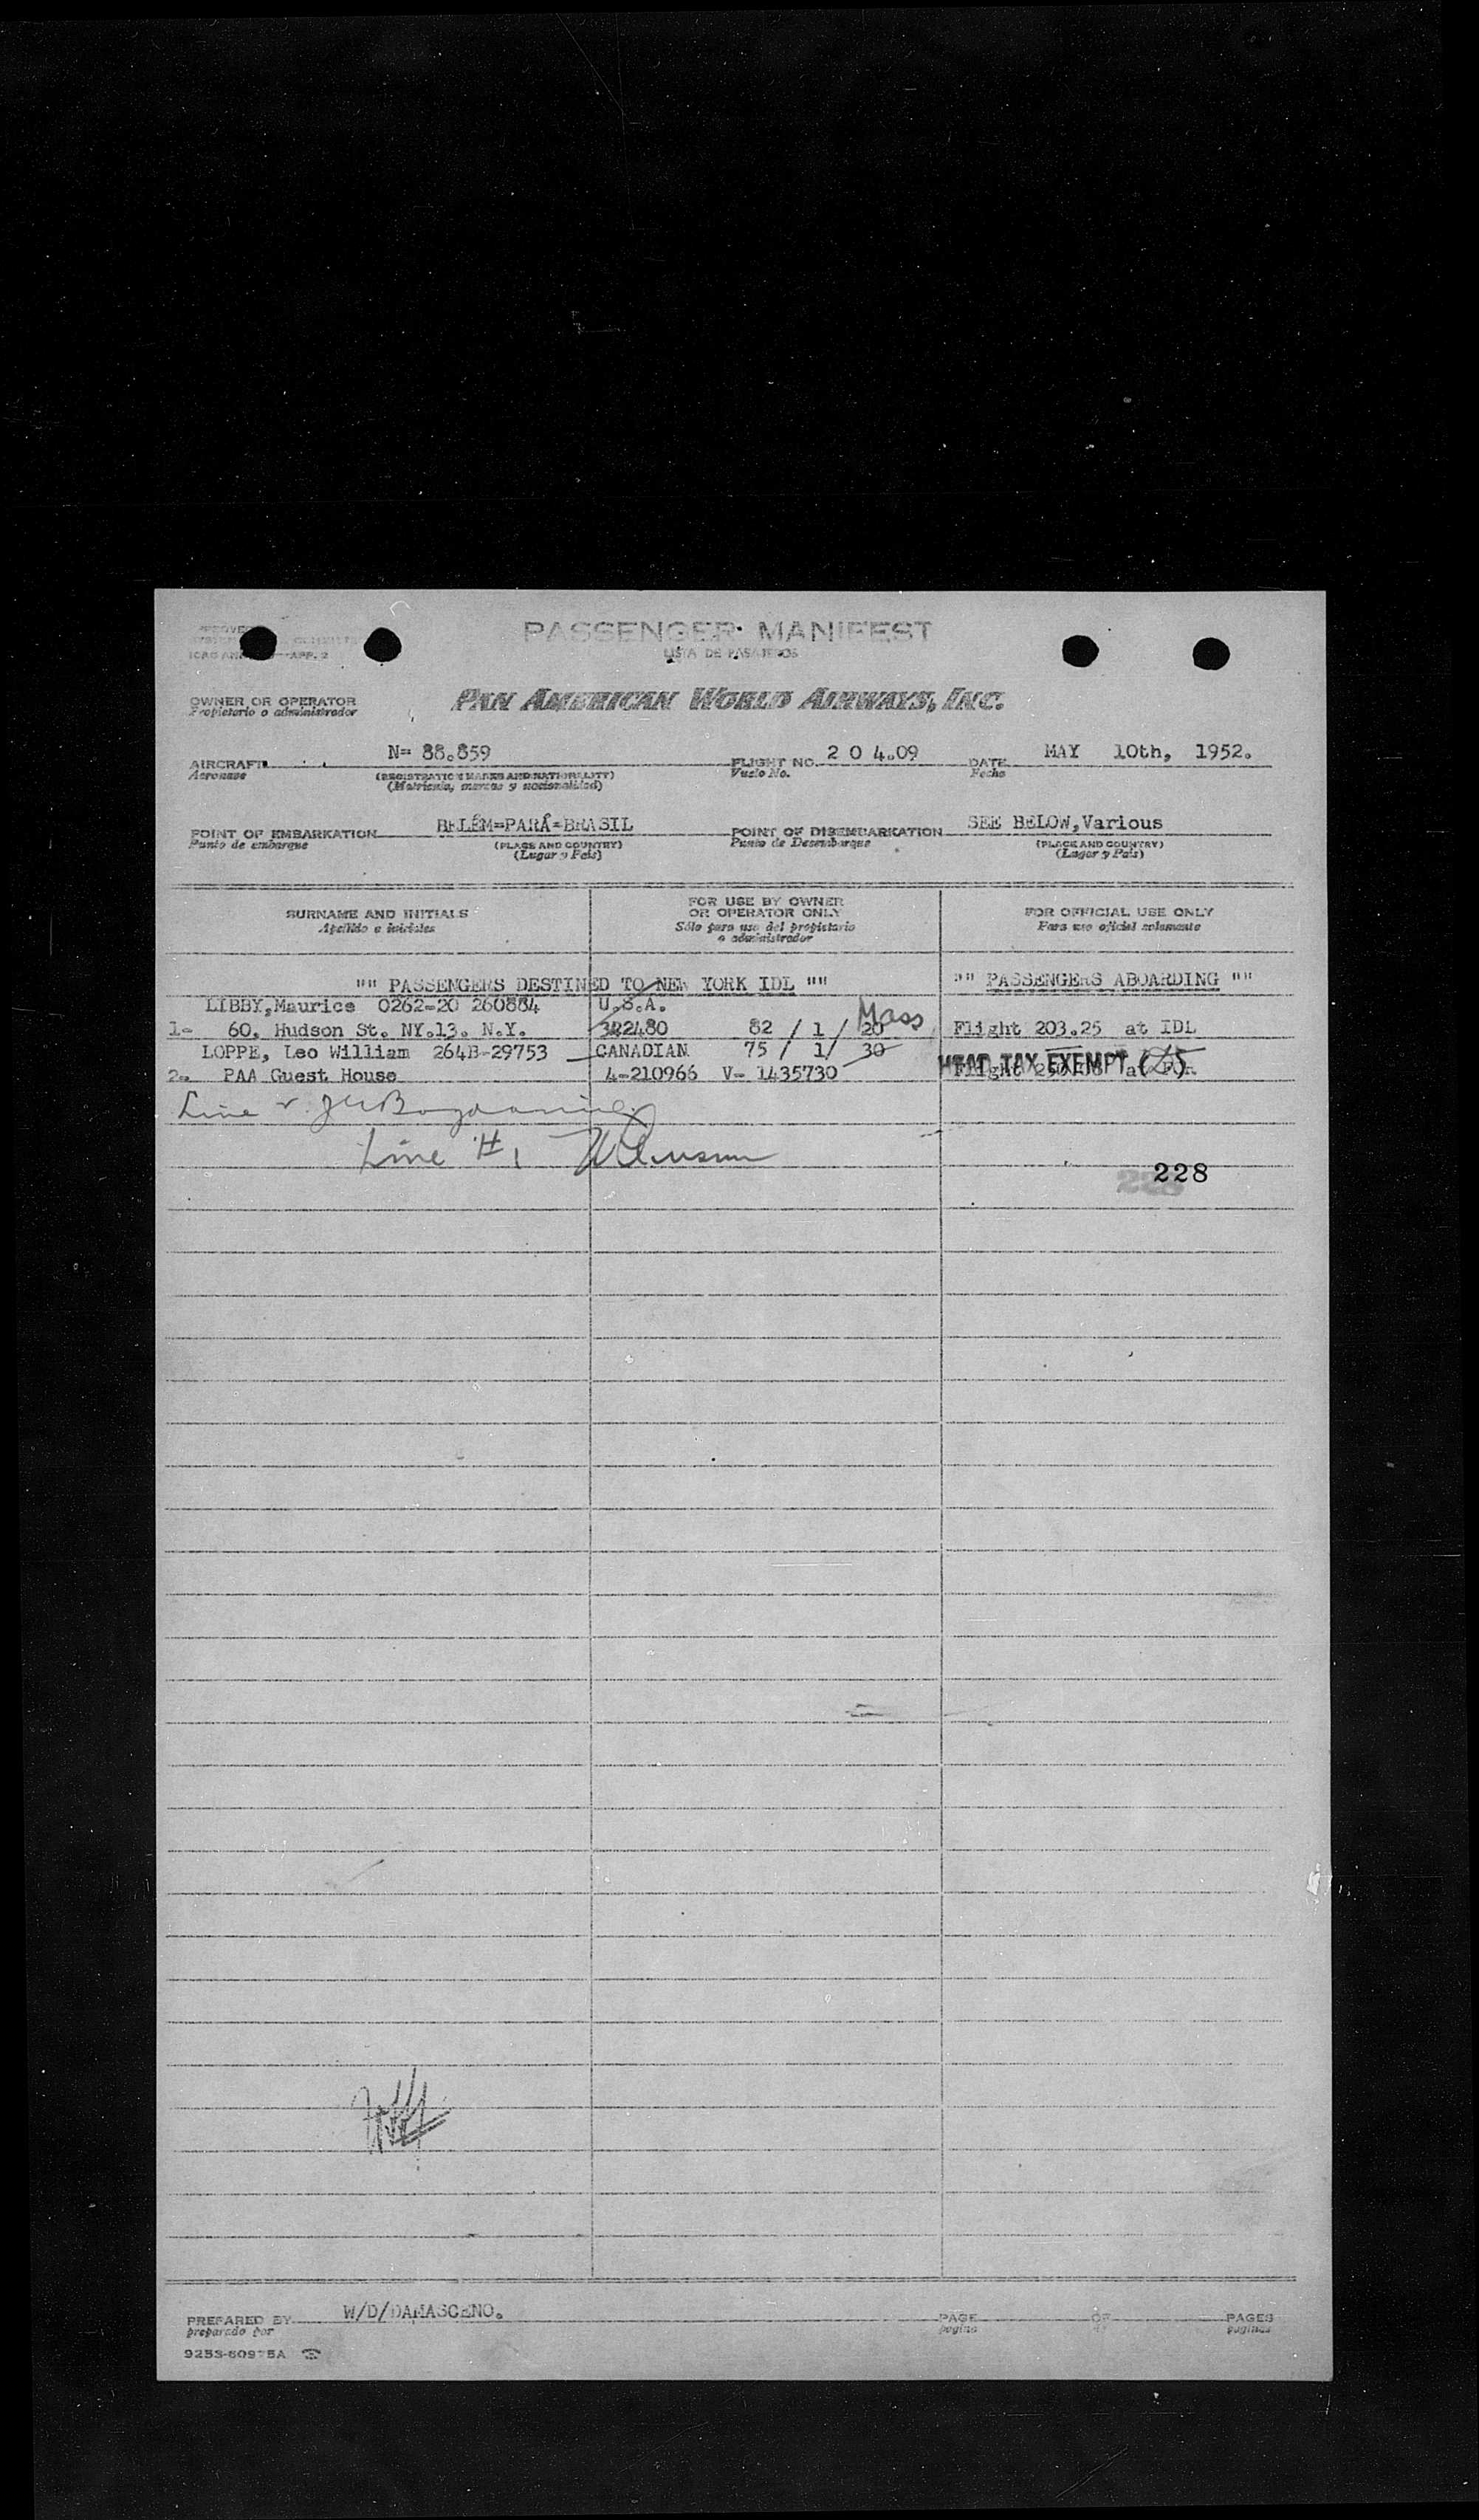 PASSENGER MANIFEST
LISTA DE PASAJEROS
OWNER OR OPERATOR PAN AMERICAN WORLD AIRWAYS, INC.
Propietario o administrador
AIRCRAFT N= 88.859 FLIGHT NO. 2 0 4.09 DATE MAY 10th, 1952.
Aeronave (REGISTRATION MARKS AND NATIONALITY) Vuelo No. Fecha
(Matrícula, marcas y nacionalidad)
POINT OF EMBARKATION BELÉM=PARÁ=BRASIL POINT OF DISEMBARKATION SEE BELOW,Various
Punto de embarque (PLACE AND COUNTRY) Punto de Desembarque (PLACE AND COUNTRY)
(Lugar y País) (Lugar y País)
SURNAME AND INITIALS FOR USE BY OWNER OR OPERATOR ONLY FOR OFFICIAL USE ONLY
Apellido e iniciales Sólo para uso del propietario o administrador Para uso oficial solamente
"" PASSENGERS DESTINED TO NEW YORK IDL "" "" PASSENGERS ABOARDING ""
LIBBY,Maurice 0262-20 260884 U.S.A. Mass
1- 60, Hudson St. NY.13. N.Y. 322480 82 / 1 / 20 Flight 203.25 at IDL
LOPPE, Leo William 264B-29753 CANADIAN 75 / 1/ 30 HEAD TAX EXEMPT
2- PAA Guest House 4-210966 V- 1435730 Flight
Line
Line #1
228
PREPARED BY W/D/DAMASCENO. PAGE OF PAGES
preparado por página de páginas
9253-60975A